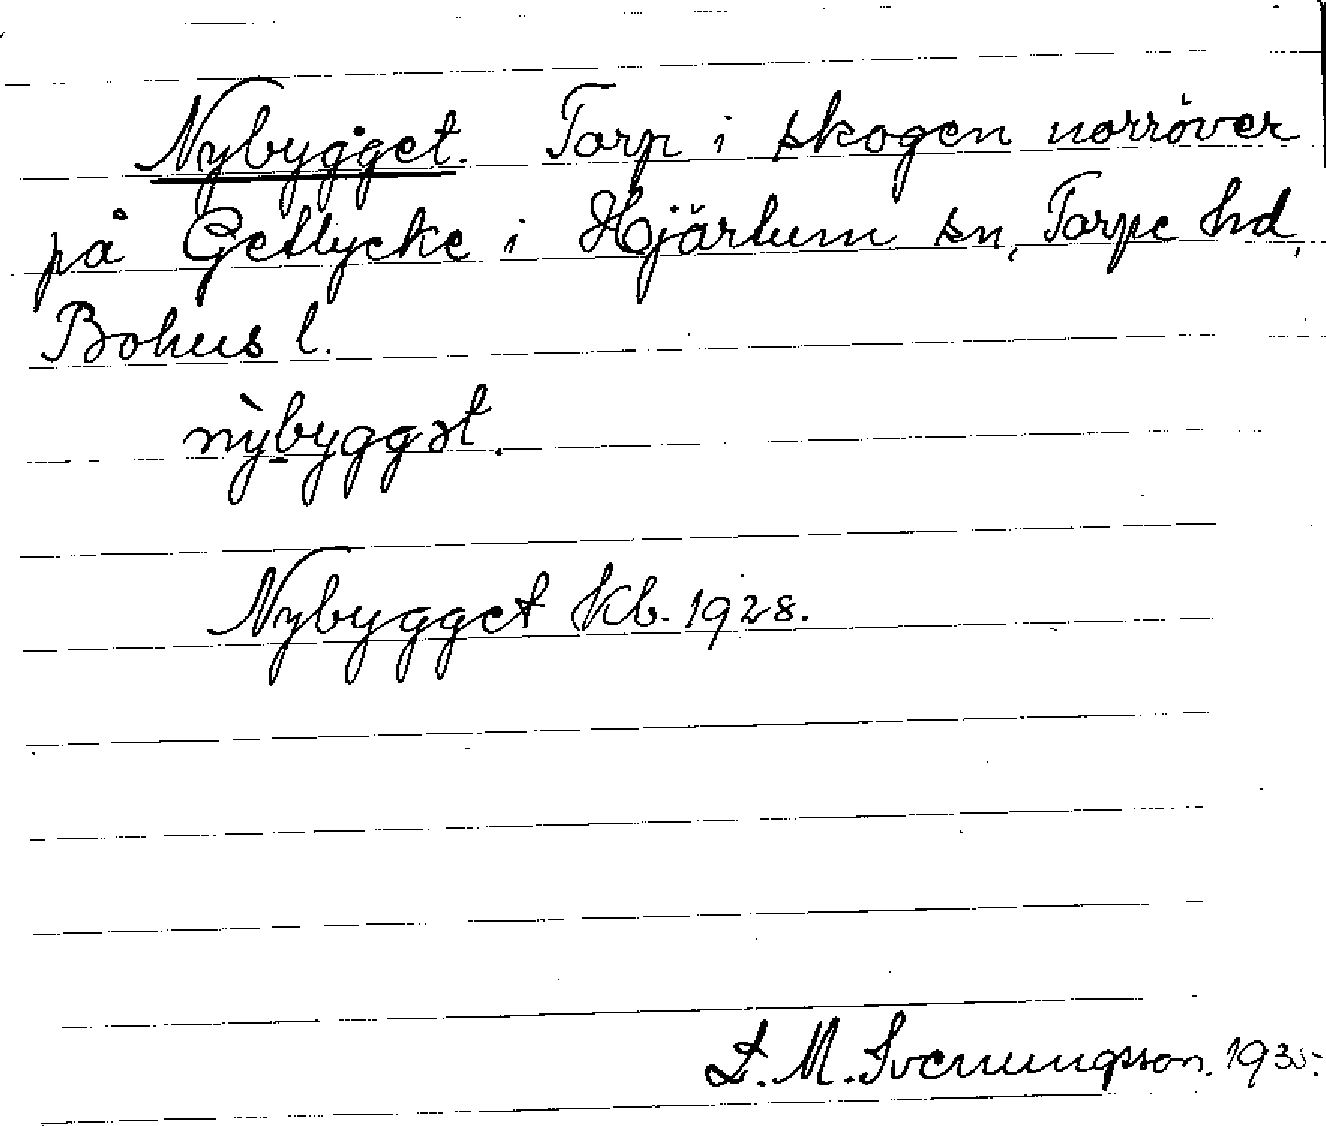 Nybygget. Torp i skogen norröver
på Getlycke i Hjärtum sn, Torpe hd,
Bohus l.
nỳbyggət.
Nybygget Kb. 1928.
L. M. Svenungsson. 1935.